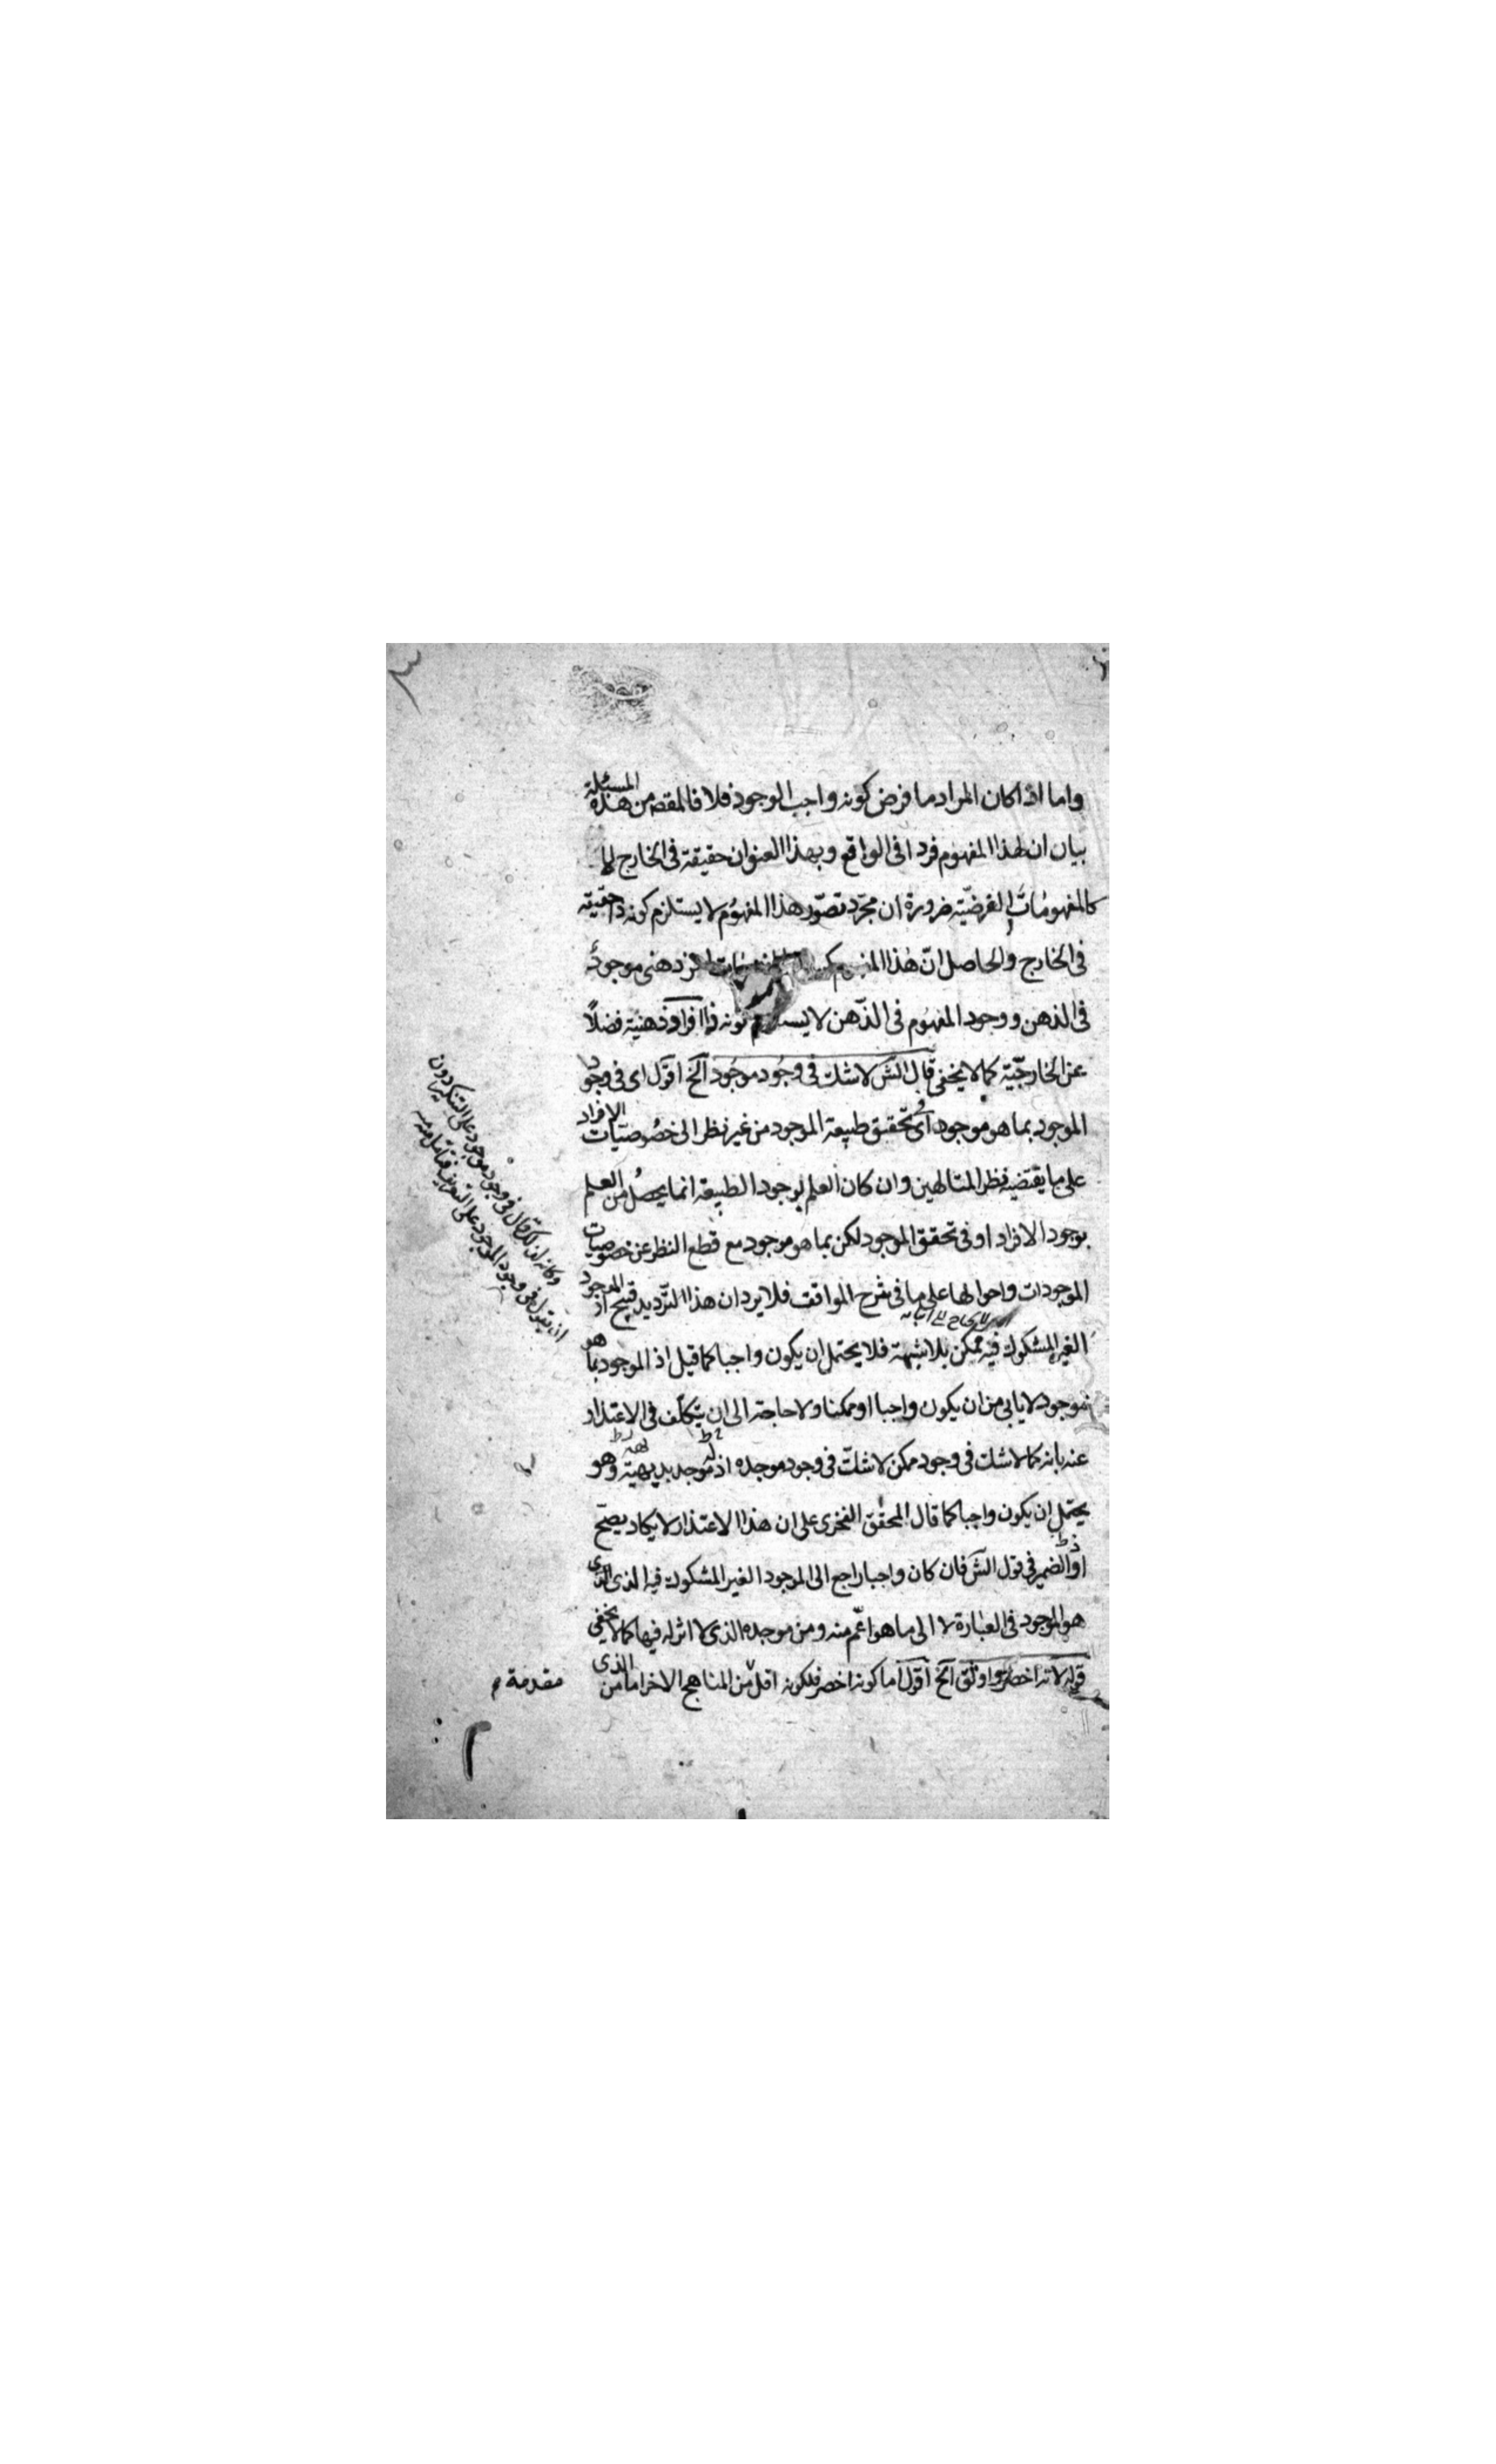 واما اذا كان المراد ما فرض كونه واجب الوجود فلا فالمقصه من هذه المسئلة
بيان ان لهذا المفهوم فردا فى الواقع وبهذا العنوان حقيقة فى الخارج لا
كالمفهومات الفرضيّة ضرورة ان مجرّد تصوّر هذا المفهوم لا يستلزم كونه ذا حقيقة
فى الخارج والحاصل انّ هذا ذهنى موجود
فى الذهن ووجود المفهوم فى الذّهن لا كونه ذا افراد ذهنية فضلًا
عن الخارجيّة كما لا يخفى قال الشّ لا شك فى وجود موجود آلخ اقول اى فى وجود
الموجود بما هو موجود اى تحقيق طبيعة الموجود من غير نظر الى خصوصيّات الافراد
على ما يقتضيه نظر المتالهين وان كان العلم بوجود الطبيعة انما يحصل من العلم
بوجود الافراد او فى تحقق الموجود لكن بما هو موجود مع قطع النظر عن خصوصيات
الموجودات واحوالها على ما فى شرح المواقف فلا يرد ان هذا التّرديد قبيح اذ الموجود
الغير المشكوك فيه ممكن بلا شبهة فلا يحتمل ان يكون واجبا كما قيل اذ الموجود بما هو
موجود لا يابى من ان يكون واجبا او ممكنا ولا حاجة الى ان يتكلّف فى الاعتذار
عنه بانه كما لا شك فى وجود ممكن لا شكّ فى وجود موجده اذ موجد بديهية وهو
يحتمل ان يكون واجبا كما قال المحقق الفخرى على ان هذا الاعتذار لا يكاد يصحّ
او الضمير فى قول الشّ فان كان واجبا راجع الى الموجود الغير المشكوك فيه الذى
هو الموجود فى العبارة لا الى ما هو اعّم منه ومن موجده الذى لا اثر له فيها كما لا يخفى
قوله لانه اخصر واوثق آلخ اقول اما كونه اخصر فلكونه اقل من المناهج الاخر اما من الذى
مقدمة م
وكانه لذلك قال فى وجود موجود على التنكير دون
ان يقول فى وجود الموجود على التعريف فتامل منه